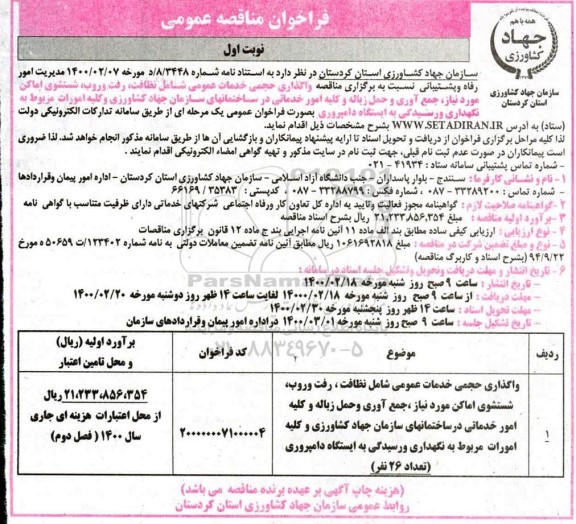 فراخوان مناقصه عمومی
نوبت اول
همه با هم
جهاد
کشاورزی
سازمان جهاد کشاورزی
استان کردستان
سازمان جهاد کشاورزی استان کردستان در نظر دارد به استناد نامه شماره ۸/۳۴۴۸/د مورخه ۱۴۰۰/۰۲/۰۷ مدیریت امور
رفاه وپشتیبانی نسبت به برگزاری مناقصه واگذاری حجمی خدمات عمومی شامل نظافت، رفت وروب، شستشوی اماکن
مورد نیاز، جمع آوری و حمل زباله و کلیه امور خدماتی در ساختمانهای سازمان جهاد کشاورزی وکلیه امورات مربوط به
نگهداری ورسیدگی به ایستگاه دامپروری بصورت فراخوان عمومی یک مرحله ای از طریق سامانه تدارکات الکترونیکی دولت
(ستاد) به آدرس WWW.SETADIRAN.IR بشرح مشخصات ذیل اقدام نماید.
لذا کلیه مراحل برگزاری فراخوان از دریافت و تحویل اسناد تا ارایه پیشنهاد پیمانکاران و بازگشایی آن ها از طریق سامانه مذکور انجام خواهد شد. لذا ضروری
است پیمانکاران در صورت عدم ثبت نام قبلی، جهت ثبت نام در سایت مذکور و تهیه گواهی امضاء الکترونیکی اقدام نمایند .
- شماره تماس پشتیبانی سامانه ستاد : ۴۱۹۳۴ - ۰۲۱
۱ - نام و نشانی کارفرما : سنندج - بلوار پاسداران - جنب دانشگاه آزاد اسلامی - سازمان جهاد کشاورزی استان کردستان - اداره امور پیمان وقراردادها
- شماره تماس : ۳۳۲۸۹۲۰۰ - ۰۸۷ - شماره فکس : ۳۳۲۸۸۷۹۹ - ۰۸۷ - کدپستی : ۳۵۳۸۳ / ۶۶۱۶۹
۲ - گواهینامه صلاحیت لازم : گواهینامه مجوز فعالیت وتایید به اداره کل تعاون کار ورفاه اجتماعی شرکتهای خدماتی دارای ظرفیت متناسب با گواهی نامه
۳ - برآورد اولیه مناقصه : مبلغ ۲۱,۲۳۳,۸۵۶,۳۵۴ ریال بشرح اسناد مناقصه
۴ - نوع ارزیابی : ارزیابی کیفی ساده مطابق بند الف ماده ۱۱ آئین نامه اجرایی بند ج ماده ۱۲ قانون برگزاری مناقصات
۵ - نوع و مبلغ تضمین شرکت در مناقصه : مبلغ ۱۰۶۱۶۹۲۸۱۸ ریال مطابق آئین نامه تضمین معاملات دولتی به نامه شماره ۱۲۳۴۰۲/ت ۵۰۶۵۹ ه مورخ
۹۴/۹/۲۲ (بشرح اسناد و کاربرگ مناقصه)
۶ - تاریخ انتشار و مهلت دریافت وتحویل وتشکیل جلسه اسناد در سامانه :
- تاریخ انتشار : ساعت ۹ صبح روز شنبه مورخه ۱۴۰۰/۰۲/۱۸
- مهلت دریافت : از ساعت ۹ صبح روز شنبه مورخه ۱۴۰۰۰/۰۲/۱۸ لغایت ساعت ۱۴ ظهر روز دوشنبه مورخه ۱۴۰۰/۰۲/۲۰
- مهلت تحویل اسناد : ساعت ۱۴ ظهر روز پنجشنبه مورخه ۱۴۰۰/۰۲/۳۰
- تاریخ تشکیل جلسه : ساعت ۹ صبح روز شنبه مورخه ۱۴۰۰/۰۳/۰۱ دراداره امور پیمان وقراردادهای سازمان
ParsNamad
۰۲۱-۸۸۳۴۹۶۷۰-۵
ردیف
موضوع
کد فراخوان
برآورد اولیه (ریال)
و محل تامین اعتبار
۱
واگذاری حجمی خدمات عمومی شامل نظافت ، رفت وروب،
شستشوی اماکن مورد نیاز ،جمع آوری وحمل زباله و کلیه
امور خدماتی درساختمانهای سازمان جهاد کشاورزی و کلیه
امورات مربوط به نگهداری ورسیدگی به ایستگاه دامپروری
(تعداد ۲۶ نفر)
۲۰۰۰۰۰۰۰۷۱۰۰۰۰۰۴
۲۱,۲۳۳,۸۵۶,۳۵۴ ریال
از محل اعتبارات هزینه ای جاری
سال ۱۴۰۰ ( فصل دوم)
(هزینه چاپ آگهی بر عهده برنده مناقصه می باشد)
روابط عمومی سازمان جهاد کشاورزی استان کردستان